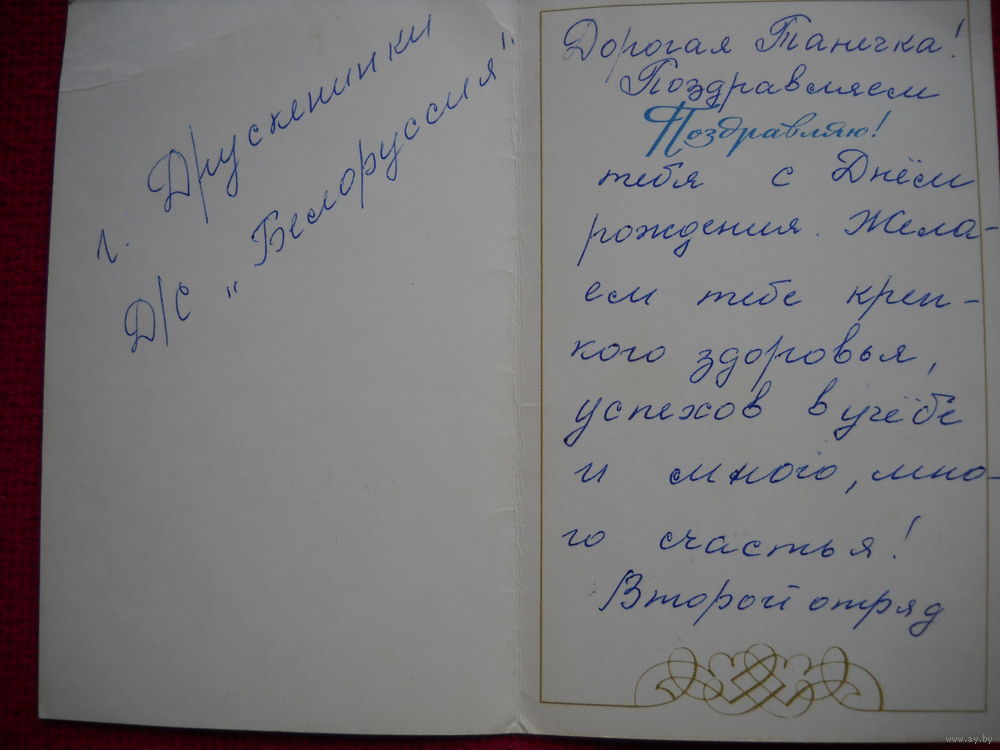 г. Друскенинки
Д/С „Белоруссия".
Дорогая Танечка!
Поздравляем
Поздравляю!
тебя с Днём
рождения. Жела-
ем тебе креп-
кого здоровья,
успехов в учёбе
и много, мно-
го счастья!
Второй отряд
www.ay.by